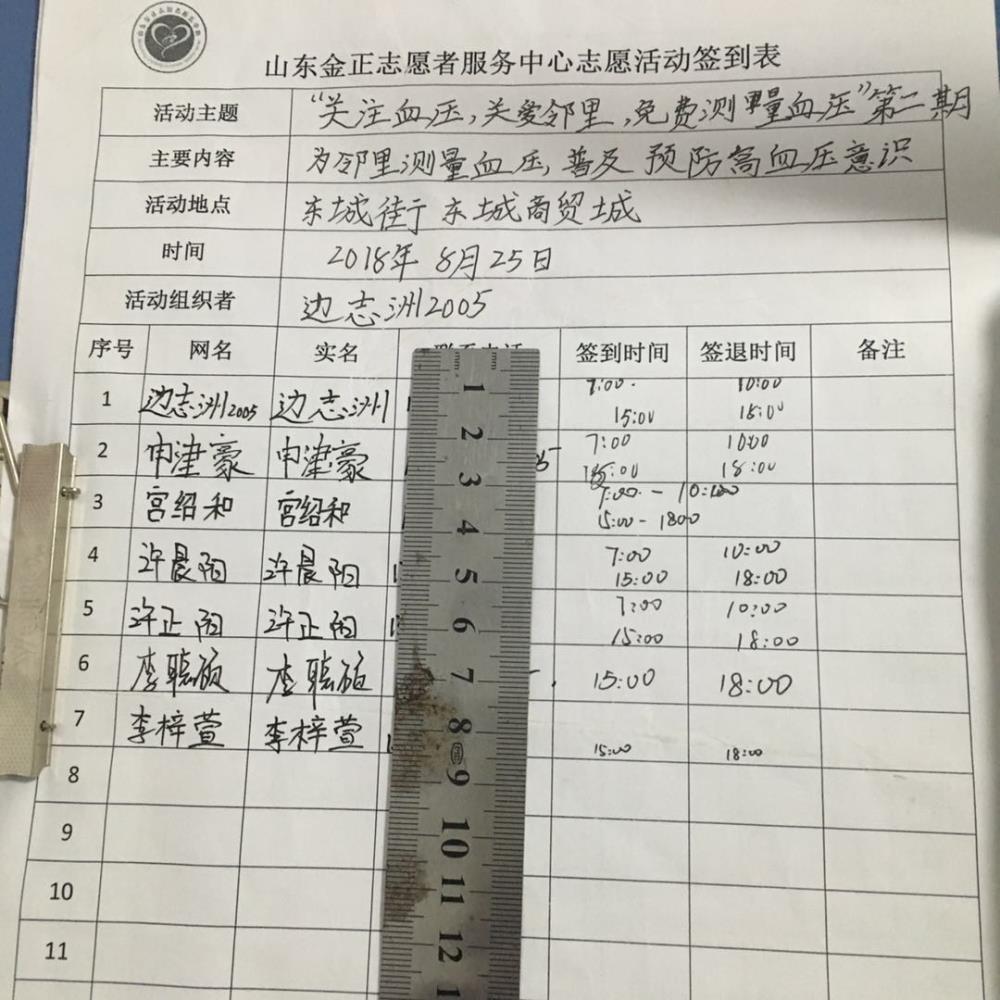 山东金正志愿者服务中心志愿活动签到表
活动主题 “关注血压,关爱邻里,免费测量血压”第二期
主要内容 为邻里测量血压,普及预防高血压意识
活动地点 东城街 东城商贸城
时间 2018年8月25日
活动组织者 边志洲2005
序号 网名 实名 签到时间 签退时间 备注
1 边志洲2005 边志洲 7:00 10:00
15:00 18:00
2 申津豪 申津豪 7:00 10:00
15:00 18:00
3 宫绍和 宫绍和 7:00 - 10:00
15:00 - 1800
4 许晨阳 许晨阳 7:00 10:00
15:00 18:00
5 许正阳 许正阳 7:00 10:00
15:00 18:00
6 李聪硕 李聪硕 15:00 18:00
7 李梓萱 李梓萱 15:00 18:00
8
9
10
11
1
2
3
4
5
6
7
8
9
10
11
12